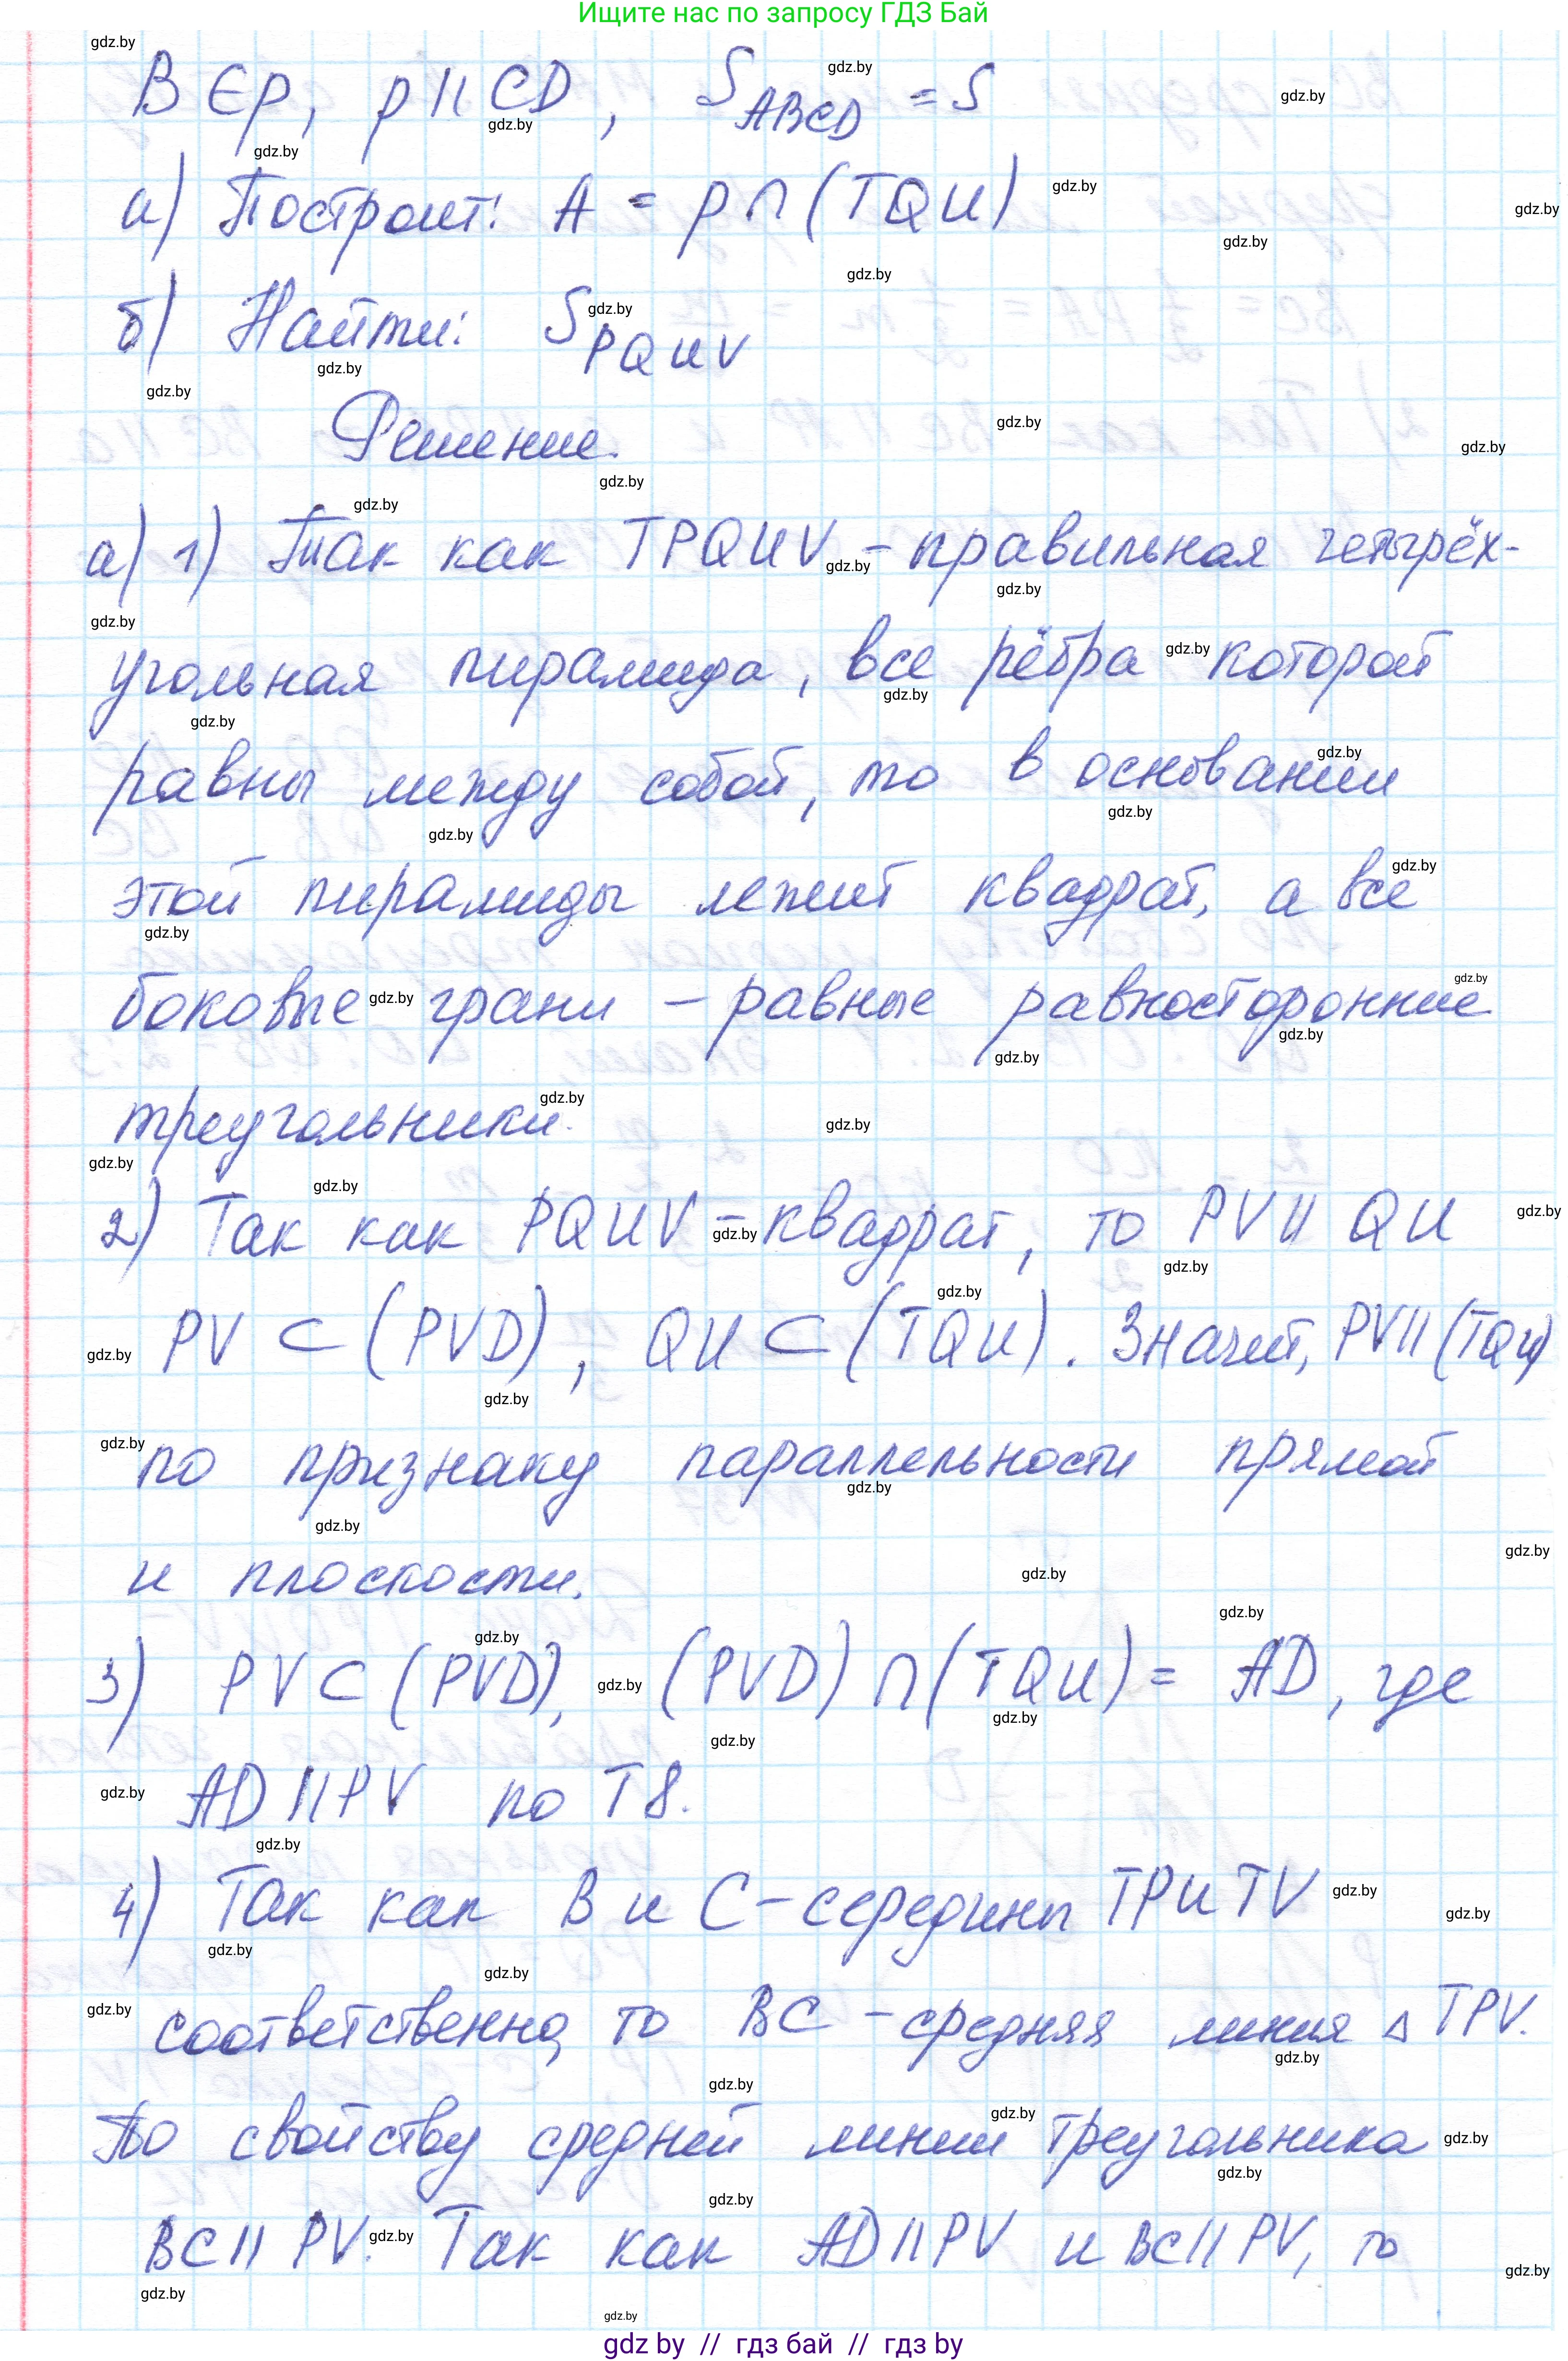 Ищите нас по запросу ГДЗ Бай
B ∈ p, p || CD, S_ABCD = S
а) Построит: A = p ∩ (TQU)
б) Найти: S_PQUV
Решение.
а) 1) Так как TPQUV – правильная четырёх-
угольная пирамида, все рёбра которой
равны между собой, то в основании
этой пирамиды лежит квадрат, а все
боковые грани – равные равносторонние
треугольники.
2) Так как PQUV – квадрат, то PV || QU
PV ⊂ (PVD), QU ⊂ (TQU). Значит, PV || (TQU)
по признаку параллельности прямой
и плоскости.
3) PV ⊂ (PVD), (PVD) ∩ (TQU) = AD, где
AD || PV по Т8.
4) Так как B и C – середины TP и TV
соответственно, то BC – средняя линия △ TPV.
По свойству средней линии треугольника
BC || PV. Так как AD || PV и BC || PV, то
gdz by // гдз бай // гдз by